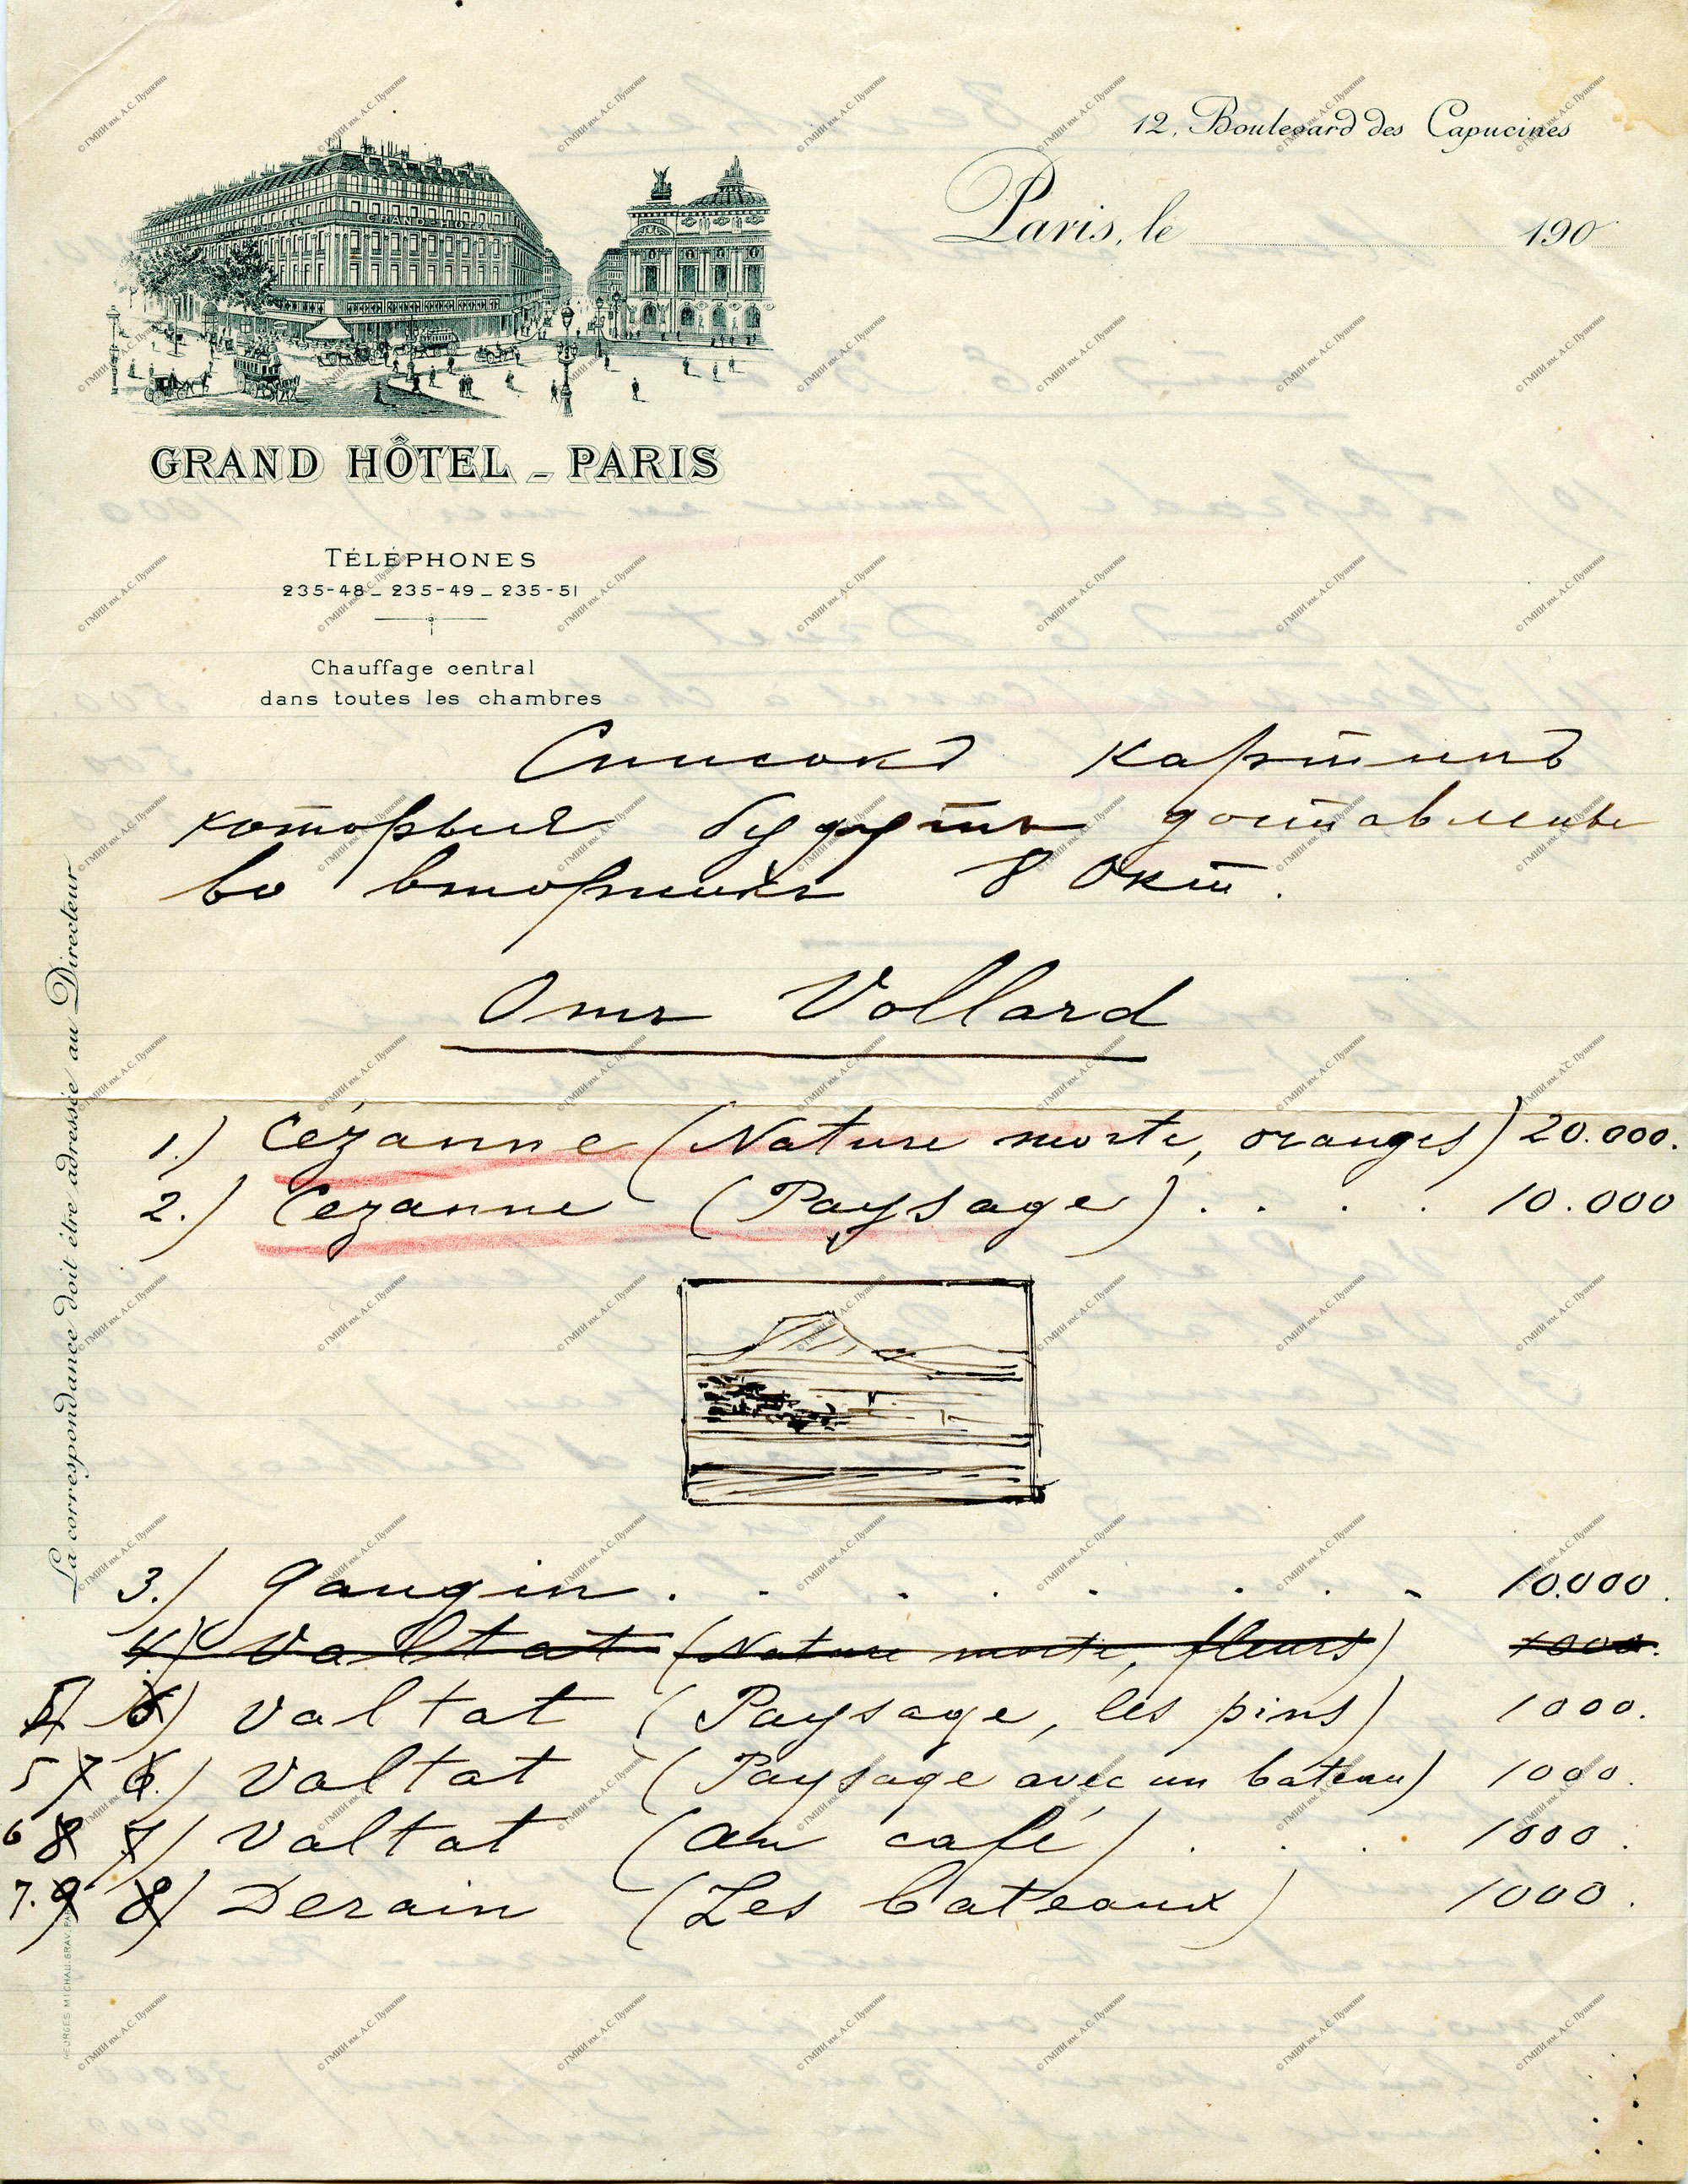 12, Boulevard des Capucines
Paris, le 190
GRAND HÔTEL
GRAND HÔTEL - PARIS
TÉLÉPHONES
235-48 - 235-49 - 235-51
Chauffage central
dans toutes les chambres
La correspondance doit être adressée au Directeur
Списокъ картинъ
которыя будутъ доставлены
во вторникъ 8 Окт.
Отъ Vollard
1.) Cézanne (Nature morte, oranges) 20.000.
2.) Cezanne (Paysage) . . . . 10.000
3.) Gaugin . . . . . . . . 10.000.
4.) Valtat (Nature morte, fleurs) 1000.
5) Valtat (Paysage, les pins) 1000.
5 7 6.) Valtat (Paysage avec un bateau) 1000.
6 8 7) Valtat (Au café) . . . 1000.
7. 9 8) Derain (Les bateaux) 1000.
© ГМИИ им. А.С. Пушкина